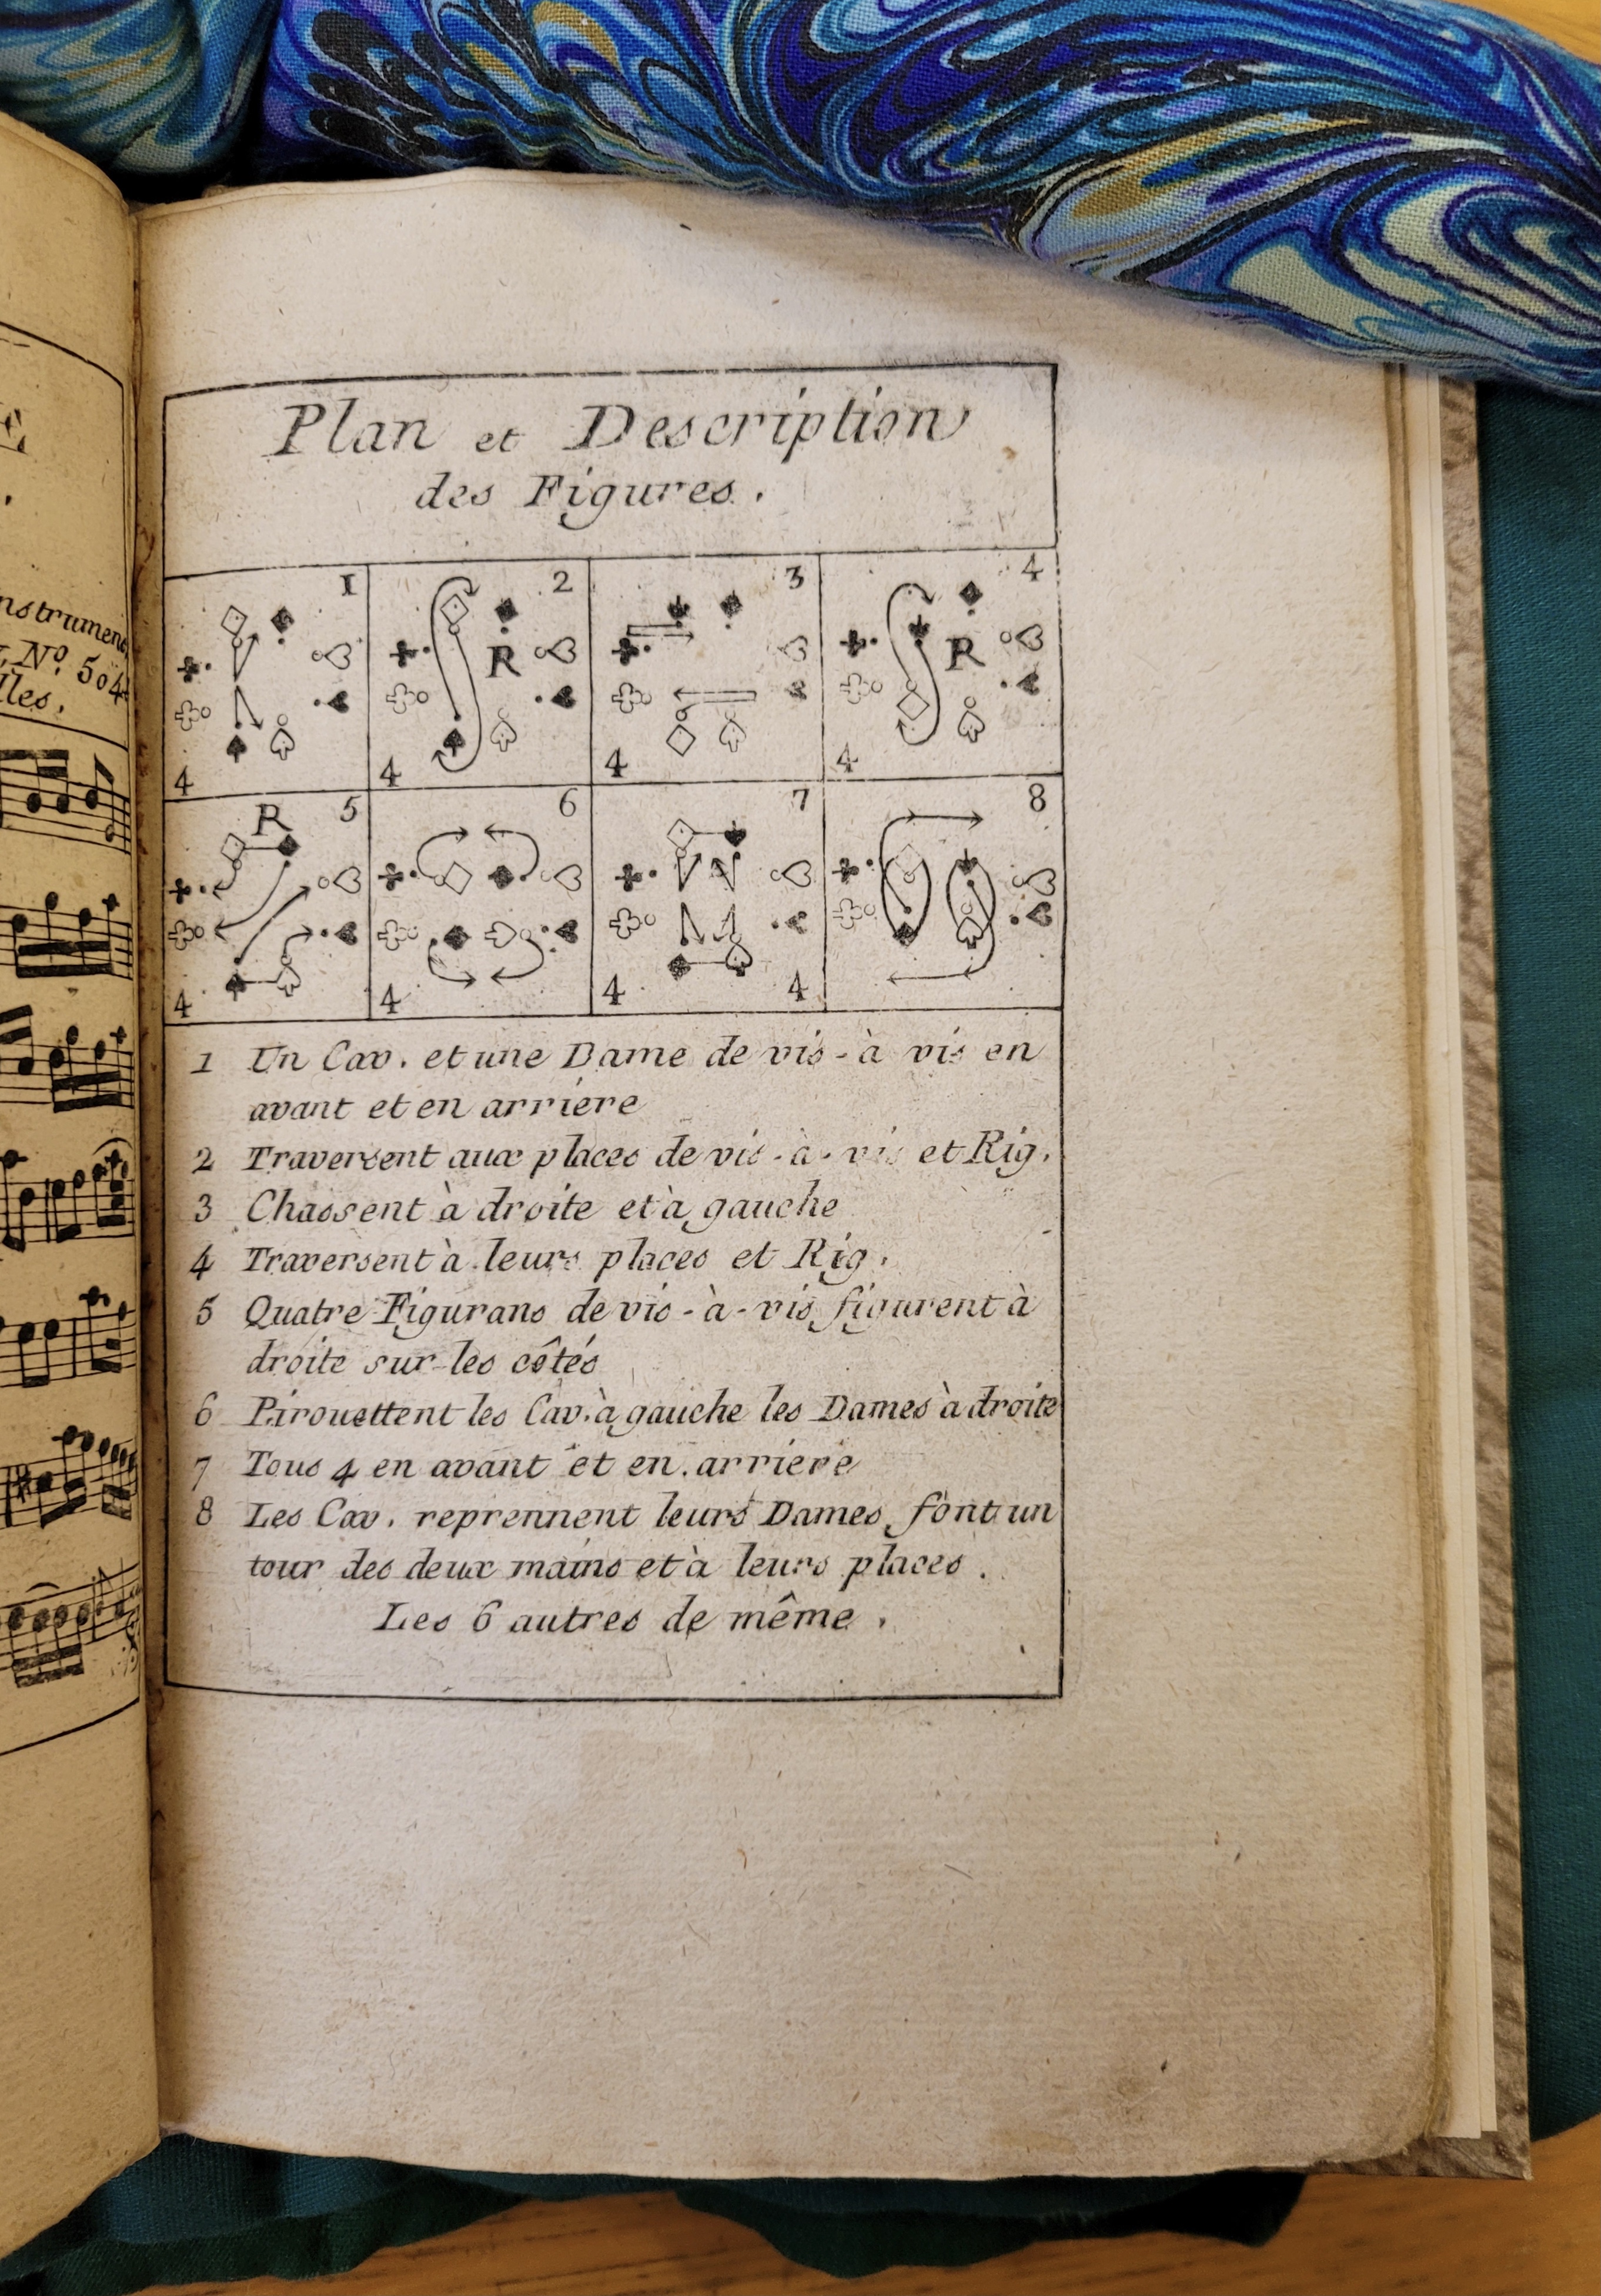 nstrumens
N.º 504
lles.
Plan et Description
des Figures.
1 2 3 4
R R
4 4 4 4
R 5 6 7 8
4 4 4 4
1 Un Cav. et une Dame de vis-à vis en
avant et en arriere
2 Traversent aux places de vis-à-vis et Rig.
3 Chassent à droite et à gauche
4 Traversent à leurs places et Rig.
5 Quatre Figurans de vis-à-vis figurent à
droite sur les côtés
6 Pirouettent les Cav. à gauche les Dames à droite
7 Tous 4 en avant et en arriere
8 Les Cav. reprennent leurs Dames, font un
tour des deux mains et à leurs places.
Les 6 autres de même.